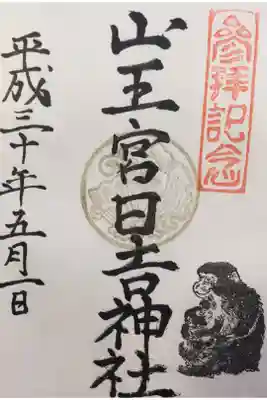 參拝記念
山王宮日吉神社
平成三十年五月一日